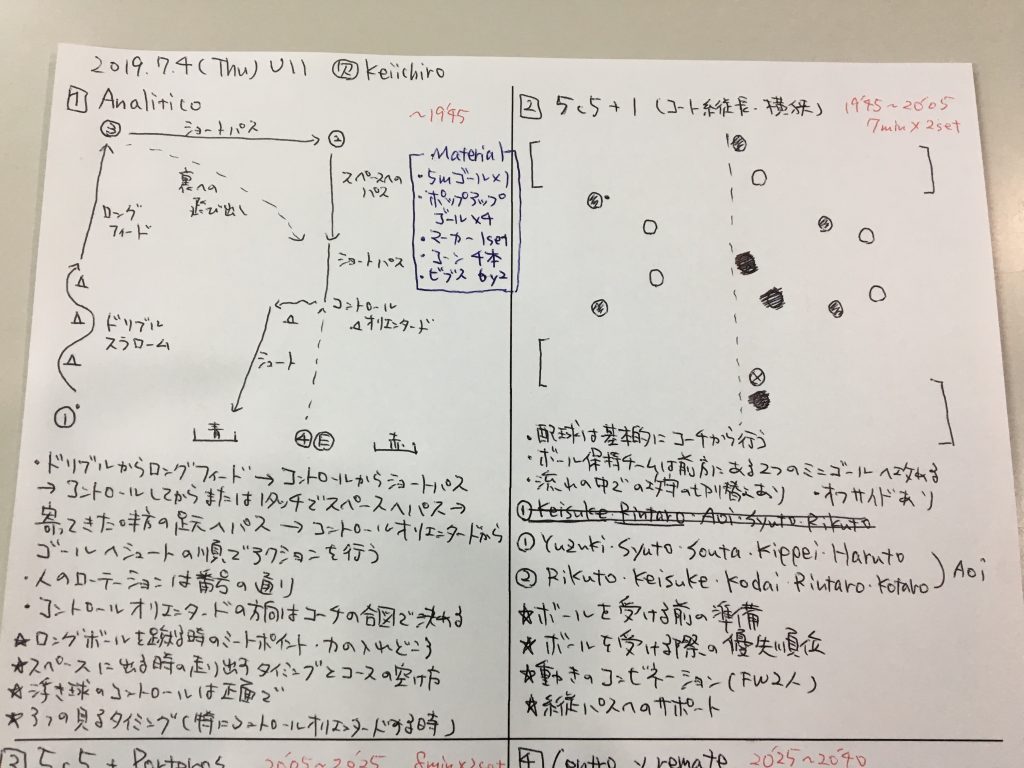 2019.7.4(Thu) U11 欠 Keiichiro
1 Analitico
~19'45
③ ショートパス ②
裏への
飛び出し
スペースへの
パス
ロング
フィード
ショートパス
コントロール
オリエンタード
ドリブル
スラローム
シュート
①
青
④ E
赤
Material
・5mゴール×1
・ポップアップ
ゴール×4
・マーカー1set
・コーン 4本
・ビブス 6y2
・ドリブルからロングフィード→コントロールからショートパス
→コントロールしてからまたは1タッチでスペースへパス→
寄ってきた味方の足元へパス→コントロールオリエンタードから
ゴールへシュートの順でアクションを行う
・人のローテーションは番号の通り
・コントロールオリエンタードの方向はコーチの合図で決める
☆ロングボールを蹴る時のミートポイント・力の入れどころ
☆スペースに出る時の走り出すタイミングとコースの空け方
☆浮き球のコントロールは正面で
☆3つの見るタイミング(特にコントロールオリエンタードする時)
2 5c5+1 (コート縦長・横狭)
19'45~20'05
7min×2set
・配球は基本的にコーチから行う
・ボール保持チームは前方にある2つのミニゴールへ攻める
・流れの中での攻守の切り替えあり ・オフサイドあり
① Keisuke Rintaro・Aoi・Syuto・Rikuto
① Yuzuki・Syuto・Souta・Kippei・Haruto
② Rikuto・Keisuke・Kodai・Rintaro・Kotaro
Aoi
☆ボールを受ける前の準備
☆ボールを受ける際の優先順位
☆動きのコンビネーション(FW2人)
☆縦パスへのサポート
3 5c5+ Porteros 20'05~20'25 8min×2set
4 Contro y remate 20'25~20'40